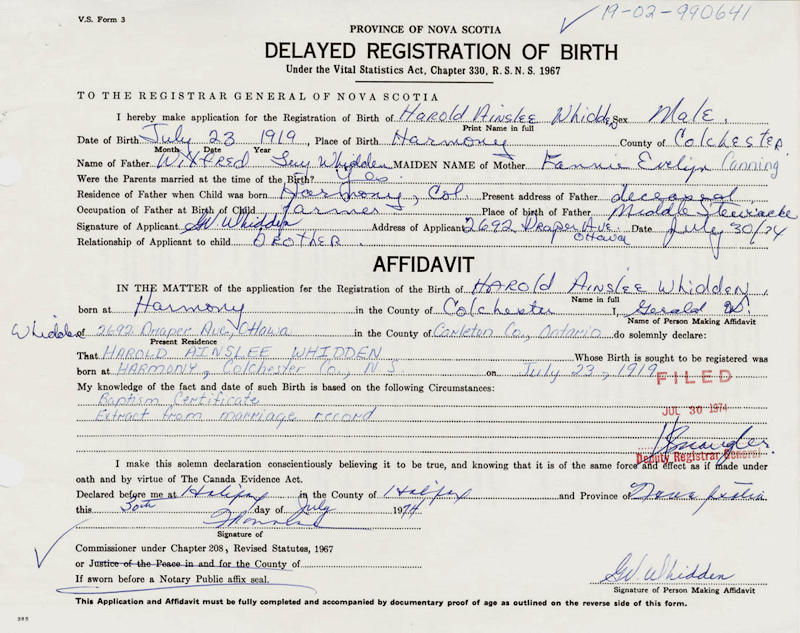 V.S. Form 3
19-02-990641
PROVINCE OF NOVA SCOTIA
DELAYED REGISTRATION OF BIRTH
Under the Vital Statistics Act, Chapter 330, R.S.N.S. 1967
TO THE REGISTRAR GENERAL OF NOVA SCOTIA
I hereby make application for the Registration of Birth of Harold Ainslee Whidden Sex Male
Print Name in full
Date of Birth July 23 1919, Place of Birth Harmony County of Colchester
Month Date Year
Name of Father Wilfred Guy Whidden MAIDEN NAME of Mother Fannie Evelyn Canning
Were the Parents married at the time of the Birth? Yes
Residence of Father when Child was born Harmony, Col. Present address of Father deceased
Occupation of Father at Birth of Child farmer Place of birth of Father Middle Stewiacke
Signature of Applicant GW Whidden Address of Applicant 2692 Draper Ave. Ottawa Date July 30/74
Relationship of Applicant to child BROTHER
AFFIDAVIT
IN THE MATTER of the application for the Registration of the Birth of HAROLD AINSLEE WHIDDEN,
Name in full
born at Harmony in the County of Colchester I, Gerald W.
Name of Person Making Affidavit
Whidden of 2692 Draper Ave, Ottawa in the County of Carleton Co., Ontario do solemnly declare:
Present Residence
That HAROLD AINSLEE WHIDDEN Whose Birth is sought to be registered was
born at HARMONY, Colchester Co., N.S. on July 23, 1919
FILED
My knowledge of the fact and date of such Birth is based on the following Circumstances:
Baptism Certificate
JUL 30 1974
Extract from marriage record
Deputy Registrar General
I make this solemn declaration conscientiously believing it to be true, and knowing that it is of the same force and effect as if made under
oath and by virtue of The Canada Evidence Act.
Declared before me at Halifax in the County of Halifax and Province of Nova Scotia
this 30th day of July 1974
Signature of
Commissioner under Chapter 208, Revised Statutes, 1967
or Justice of the Peace in and for the County of
If sworn before a Notary Public affix seal.
GW. Whidden
Signature of Person Making Affidavit
This Application and Affidavit must be fully completed and accompanied by documentary proof of age as outlined on the reverse side of this form.